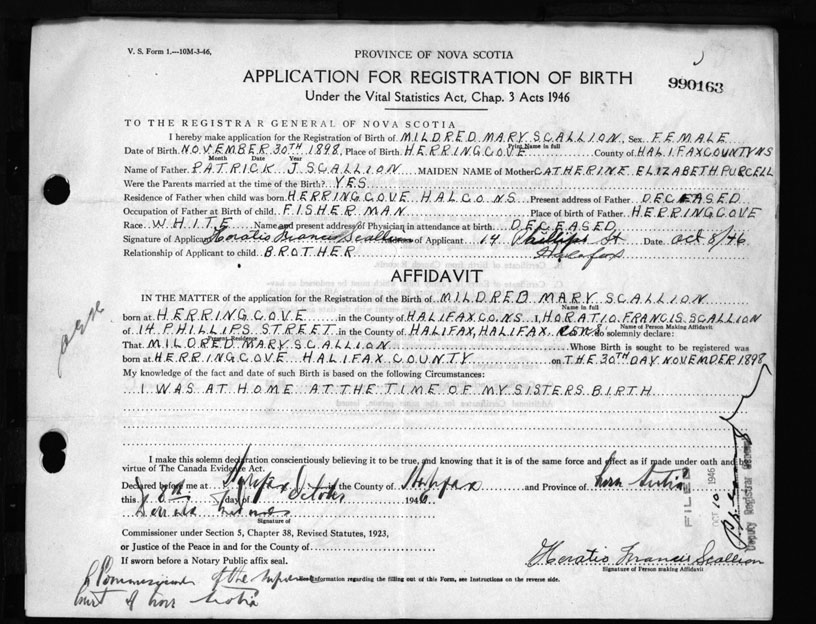 V. S. Form 1.—10M-3-46.
PROVINCE OF NOVA SCOTIA
APPLICATION FOR REGISTRATION OF BIRTH
990163
Under the Vital Statistics Act, Chap. 3 Acts 1946
TO THE REGISTRAR GENERAL OF NOVA SCOTIA
I hereby make application for the Registration of Birth of MILDRED MARY SCALLION, Sex FEMALE
Print Name in full
Date of Birth NOVEMBER 30TH 1898, Place of Birth HERRING COVE County of HALIFAX COUNTY NS
Month Date Year
Name of Father PATRICK J SCALLION MAIDEN NAME of Mother CATHERINE ELIZABETH PURCELL
Were the Parents married at the time of the Birth? YES
Residence of Father when child was born HERRING COVE HAL CO NS Present address of Father DECEASED
Occupation of Father at Birth of child FISHER MAN Place of birth of Father HERRING COVE
Race WHITE Name and present address of Physician in attendance at birth DECEASED
Signature of Applicant Horatio Francis Scallion of Applicant 14 Phillips St Date Oct 8/46
Halifax
Relationship of Applicant to child BROTHER
AFFIDAVIT
IN THE MATTER of the application for the Registration of the Birth of MILDRED MARY SCALLION
Name in full
born at HERRING COVE in the County of HALIFAX CO NS I, HORATIO FRANCIS SCALLION
Name of Person Making Affidavit
of 14 PHILLIPS STREET in the County of HALIFAX, HALIFAX do solemnly declare:
Present Residence
That MILDRED MARY SCALLION Whose Birth is sought to be registered was
born at HERRING COVE HALIFAX COUNTY on THE 30TH DAY NOVEMDER 1898
My knowledge of the fact and date of such Birth is based on the following Circumstances:
I WAS AT HOME AT THE TIME OF MY SISTERS BIRTH
I make this solemn declaration conscientiously believing it to be true, and knowing that it is of the same force and effect as if made under oath and by
virtue of The Canada Evidence Act.
Declared before me at Halifax in the County of Halifax and Province of Nova Scotia
this 8th day of October 1946
Signature of
Commissioner under Section 5, Chapter 38, Revised Statutes, 1923,
or Justice of the Peace in and for the County of
If sworn before a Notary Public affix seal.
Horatio Francis Scallion
Signature of Person making Affidavit
For information regarding the filling out of this Form, see Instructions on the reverse side.
A Commissioner of the Supreme
Court of Nova Scotia
FILED
OCT 10 1946
Deputy Registrar General